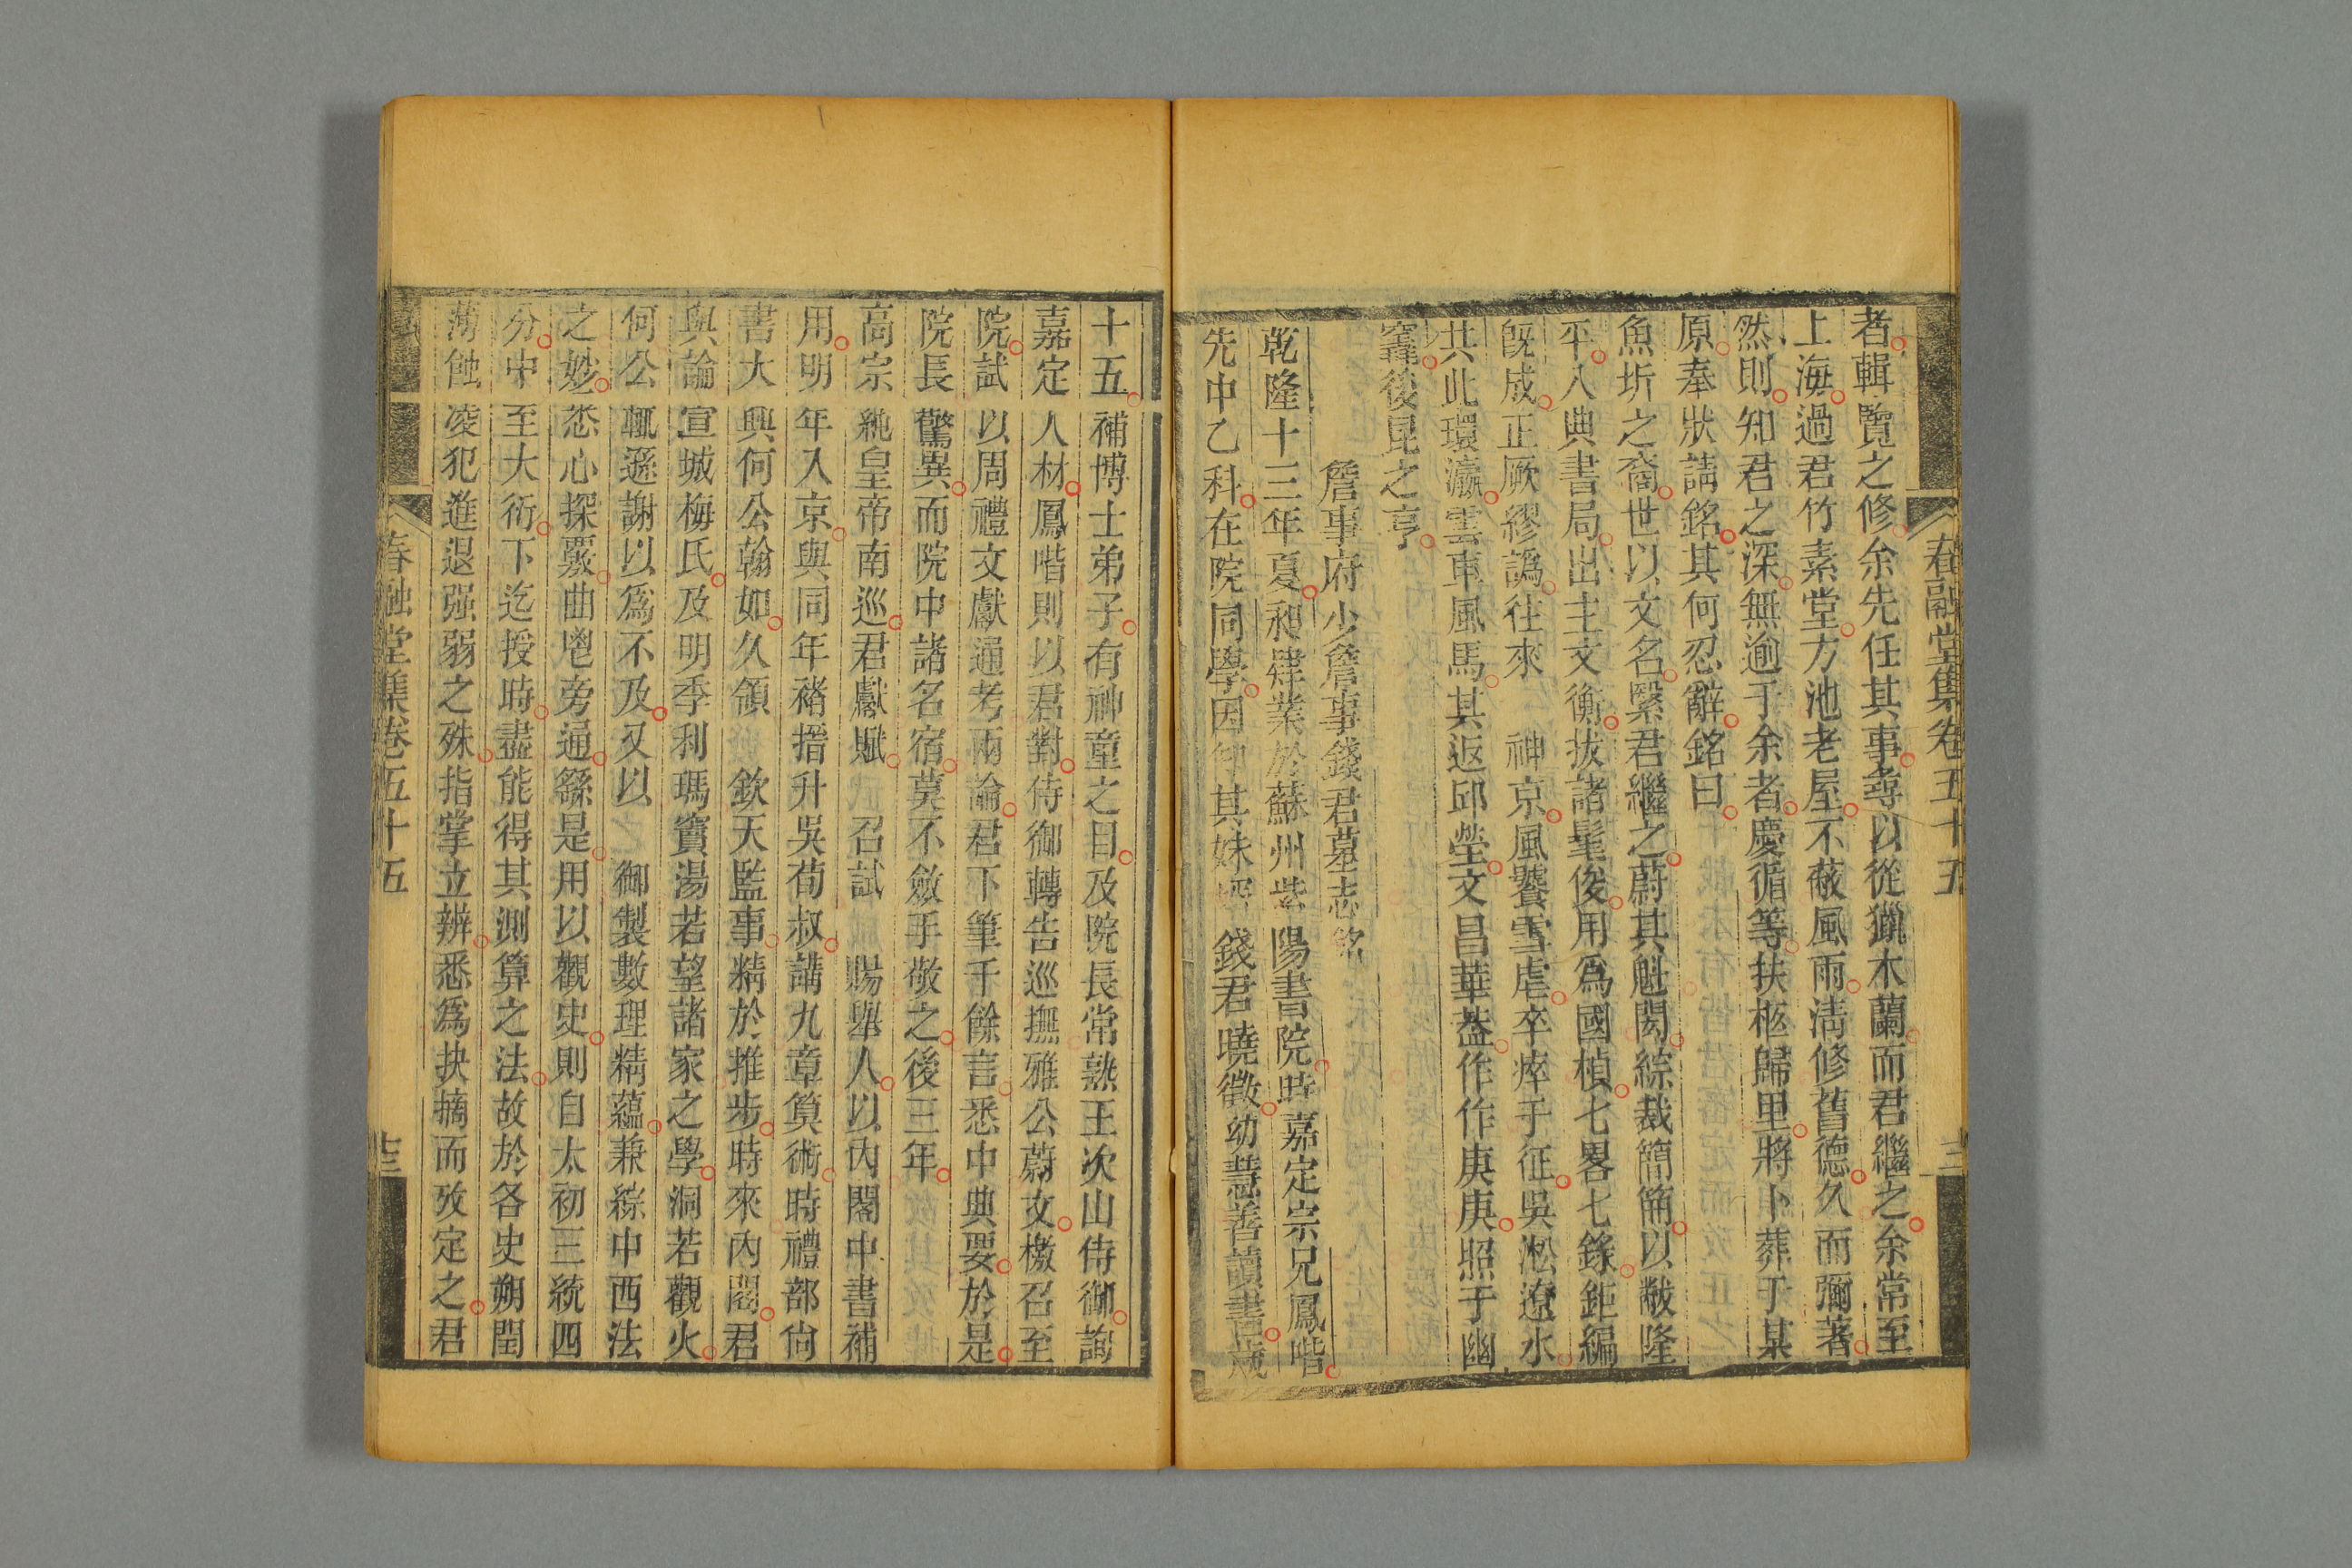 春融堂集卷五十五
者輯覽之修余先任其事尋以從獵木蘭而君繼之余常至
上海過君竹素堂方池老屋不蔽風雨清修舊德久而彌著
然則知君之深無逾于余者慶循等扶柩歸里將卜葬于某
原奉狀請銘其何忍辭銘曰
魚圻之裔世以文名繄君繼之蔚其魁閎綜裁簡簡以敵隆
平入典書局出主文衡拔諸髦俊用爲國楨七畧七錄鉅編
旣成正厥繆譌往來　神京風饕雪虐卒瘁于征吳淞遼水
共此環瀛雲車風馬其返邱塋文昌華蓋作作庚庚照于幽
窀後昆之亨
詹事府少詹事錢君墓志銘
乾隆十三年夏昶肄業於蘇州紫陽書院時嘉定宗兄鳳喈
先中乙科在院同學因仰其妹壻錢君曉徵幼慧善讀書歲
十五補博士弟子有神童之目及院長常熟王次山侍御詢
嘉定人材鳳喈則以君對侍御轉告巡撫雅公蔚文檄召至
院試以周禮文獻通考兩論君下筆千餘言悉中典要於是
院長驚異而院中諸名宿莫不斂手敬之後三年
高宗純皇帝南巡君獻賦　召試　賜舉人以內閣中書補
用明年入京與同年褚搢升吳荀叔講九章算術時禮部尙
書大興何公翰如久領　欽天監事精於推步時來內閣君
與論宣城梅氏及明季利瑪竇湯若望諸家之學洞若觀火
何公輒遜謝以爲不及又以　御製數理精蘊兼綜中西法
之妙悉心探覈曲鬯旁通繇是用以觀史則自太初三統四
分中至大衍下迄授時盡能得其測算之法故於各史朔閏
薄蝕凌犯進退强弱之殊指掌立辨悉爲抉摘而攷定之君
春融堂集卷五十五